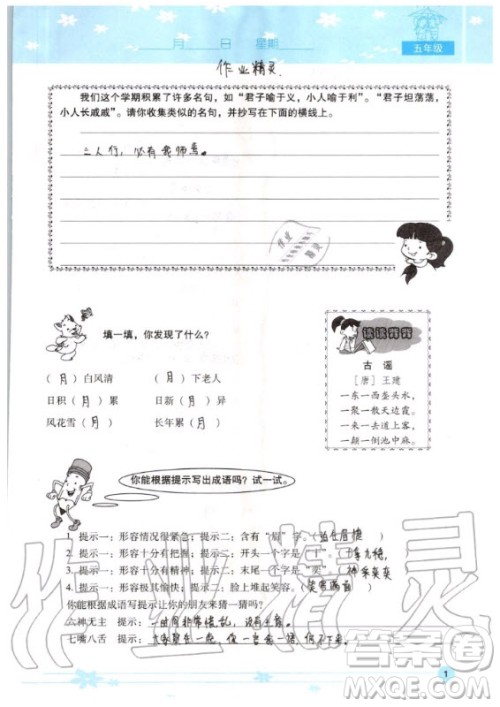 月 日 星期
五年级
作业精灵
我们这个学期积累了许多名句，如“君子喻于义，小人喻于利”。“君子坦荡荡，
小人长戚戚”。请你收集类似的名句，并抄写在下面的横线上。
三人行，必有我师焉。
作业
精灵
填一填，你发现了什么？
（月）白风清 （月）下老人
日积（月）累 日新（月）异
风花雪（月） 长年累（月）
读读背背
古谣
［唐］王建
一东一西垄头水，
一聚一散天边霞。
一来一去道上客，
一颠一倒池中麻。
你能根据提示写出成语吗？试一试。
1. 提示一：形容情况很紧急；提示二：含有“眉”字。（迫在眉睫）
2. 提示一：形容十分有把握；提示二：开头一个字是“十”。（十拿九稳）
3. 提示一：形容十分有精神；提示二：末尾一个字是“奕”。（神采奕奕）
4. 提示一：形容极其愉快；提示二：脸上堆起笑容。（笑容满面）
你能根据成语写提示让你的朋友来猜一猜吗？
六神无主 提示：一时间非常慌乱，没有主意。
七嘴八舌 提示：
作业精灵
答案圈
MXQE.COM
1